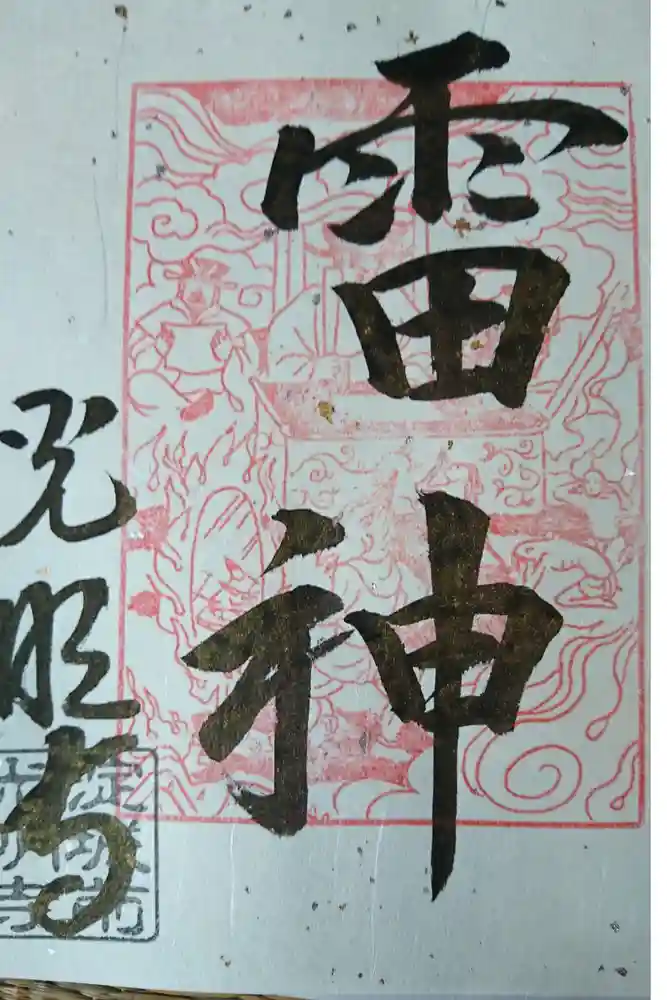 雷神
光明寺